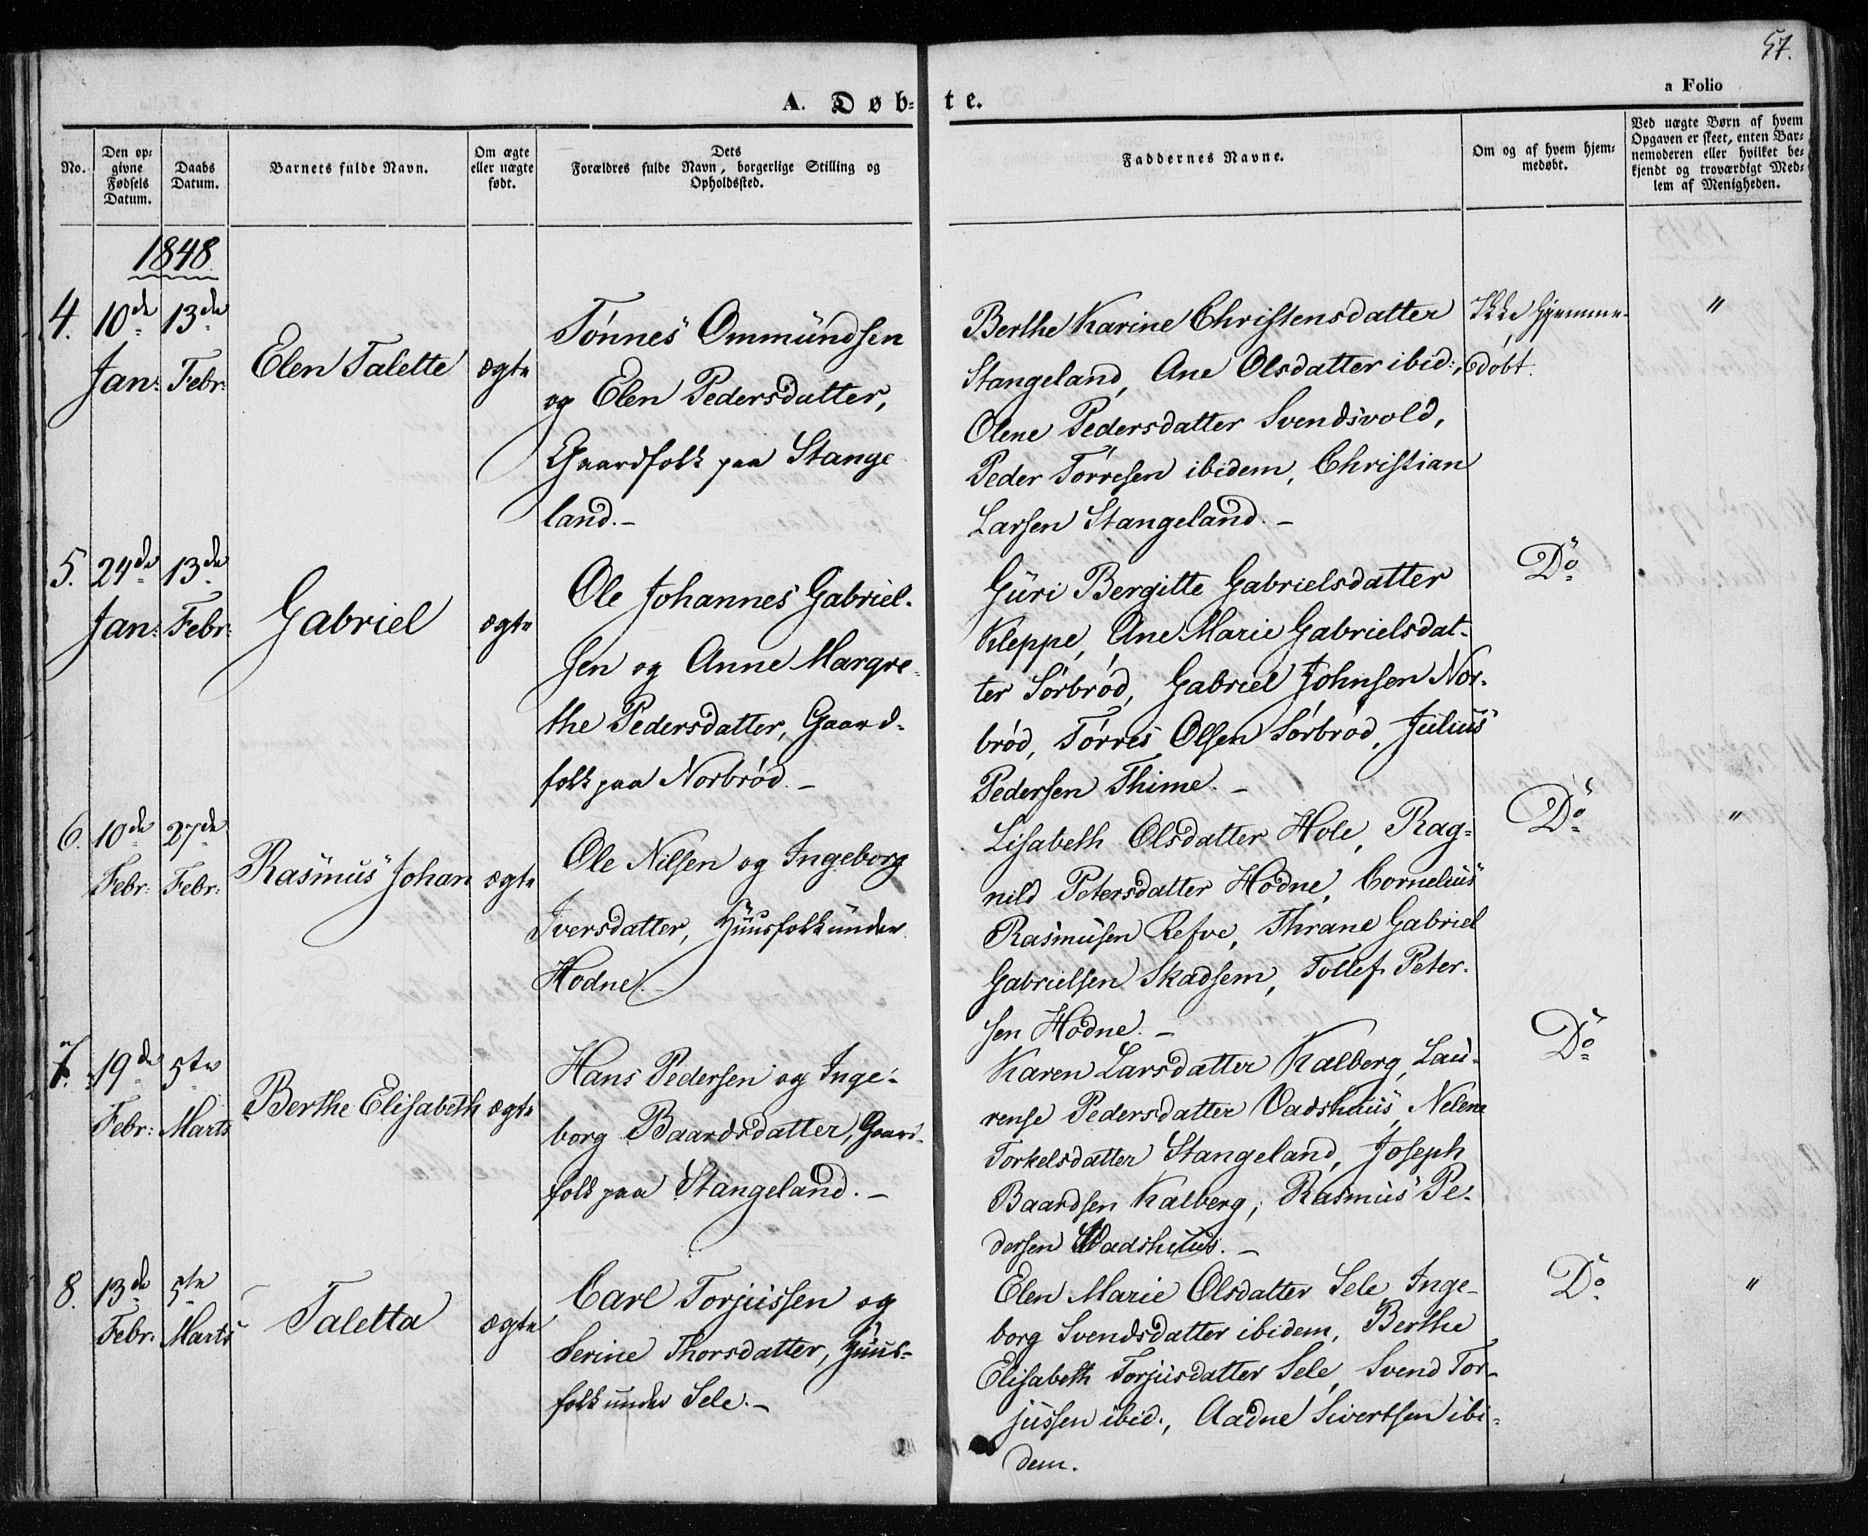 57.
A. Døb-te.
a Folio
No.
Den op-
givne
Fødsels
Datum.
Daabs
Datum.
Barnets fulde Navn.
Om ægte
eller uægte
født.
Dets
Forældres fulde Navn, borgerlige Stilling og
Opholdssted.
Faddernes Navne.
Om og af hvem hjem-
medøbt.
Ved uægte Børn af hvem
Opgaven er skeet, enten Bar-
nemoderen eller hvilket be-
kjendt og troværdigt Med-
lem af Menigheden.
1848.
4. 10de Jan: 13de Febr:
Elen Talette
ægte
Tónnes Ommundsen
og Elen Pedersdatter,
Gaardfolk paa Stange
land.-
Berthe Karine Christensdatter
Stangeland, Ane Olsdatter ibid:,
Olene Pedersdatter Svendsvold,
Peder Tórresen ibidem, Christian
Larsen Stangeland.-
Ikke Hjemme-
døbt.
"
5. 24de Jan: 13de Febr:
Gabriel
ægte
Ole Johannes Gabriel-
sen og Anne Margre-
the Pedersdatter, Gaard-
folk paa Norbród.-
Guri Bergitte Gabrielsdatter
Kleppe, Ane Marie Gabrielsdat-
ter Sórbród, Gabriel Johnsen Nor-
bród, Tórres Olsen Sórbród, Julius
Pedersen Thime.-
Do
6. 10de Febr: 27de Febr:
Rasmus Johan
ægte
Ole Nilsen og Ingeborg
Iversdatter, Huusfolk under
Hodne.-
Lisabeth Olsdatter Hole, Rag-
nild Petersdatter Hodne, Cornelius
Rasmusen Refve, Thrane Gabriel
Gabrielsen Skadsem, Tollef Peter-
sen Hodne.-
Do
"
7. 19de Febr: 5te Marts
Berthe Elisabeth
ægte
Hans Pedersen og Inge-
borg Baardsdatter, Gaard-
folk paa Stangeland.-
Karen Larsdatter Kalberg, Lau-
rense Pedersdatter Vadshuus, Nelene
Torkelsdatter Stangeland, Joseph
Baardsen Kalberg, Rasmus Pe-
dersen Vadshuus.-
Do
8. 13de Febr: 5te Marts
Taletta
ægte
Carl Torjussen og
Serine Thorsdatter, Huus-
folk under Sele.-
Elen Marie Olsdatter Sele Inge-
borg Svendsdatter ibidem, Berthe
Elisabeth Torjusdatter Sele, Svend Tor-
jussen ibid., Aadne Sivertsen ibi-
dem.
Do
"